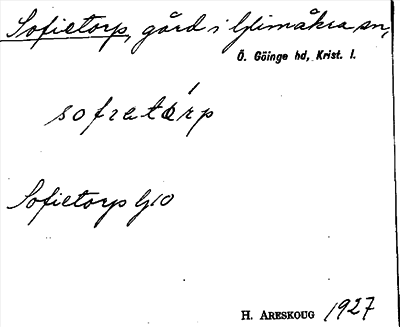 Sofietorp, gård i Glimåkra sn,
Ö. Göinge hd, Krist. l.
sofiatårp
Sofietorp GJO
H. Areskoug 1927